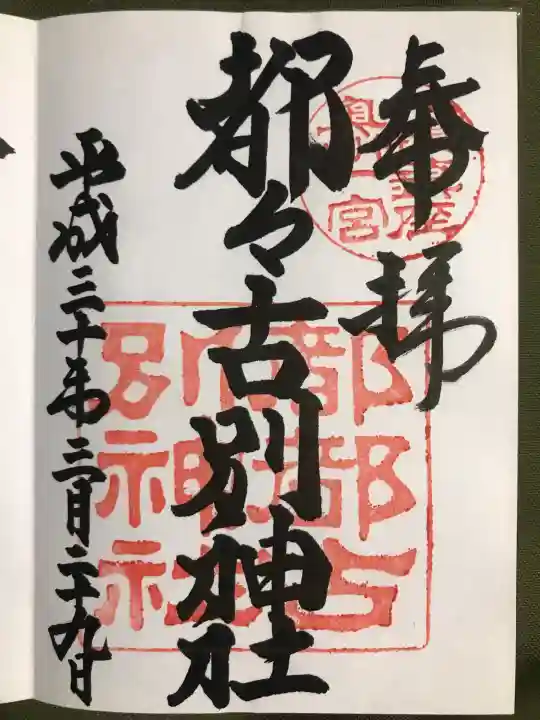 奉拝
都々古別神社
平成三十年三月二十九日
奥州一宮
都都古別神社